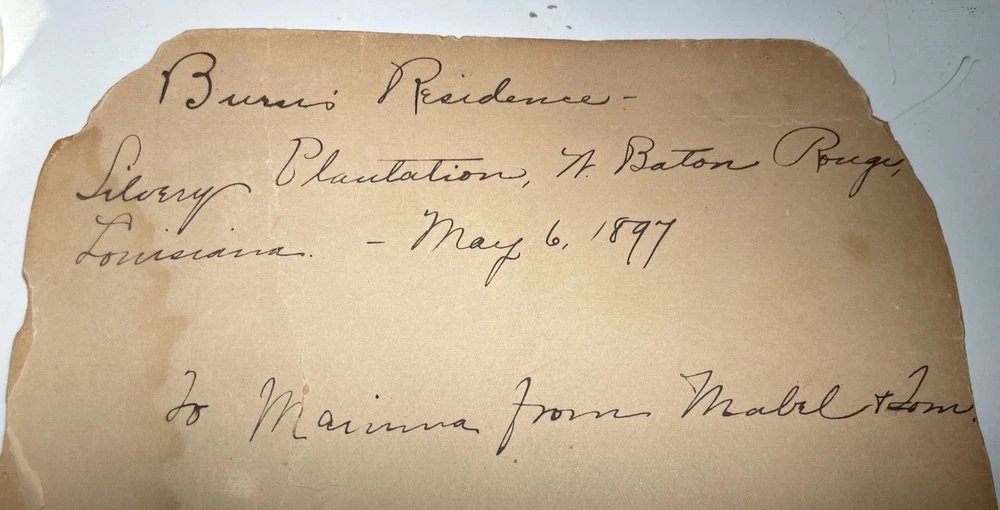 Burns' Residence -
Silvery Plantation, W. Baton Rouge,
Louisiana. - May 6, 1897
To Mamma from Mabel & Tom.